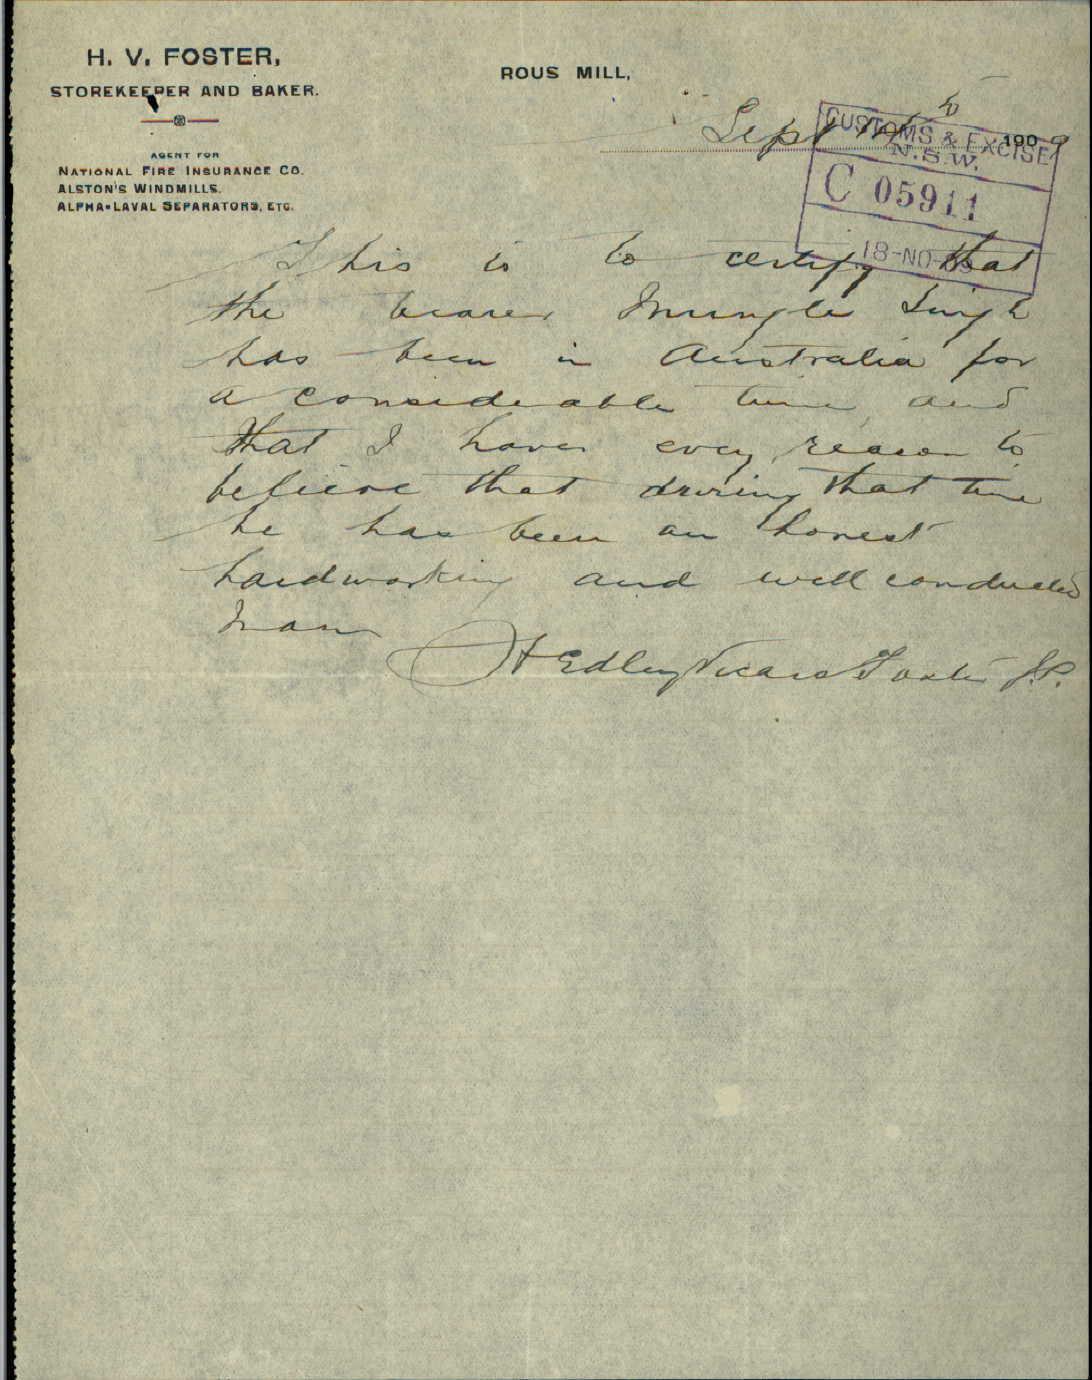 H. V. FOSTER,
STOREKEEPER AND BAKER.
AGENT FOR
NATIONAL FIRE INSURANCE CO.
ALSTON'S WINDMILLS.
ALPHA-LAVAL SEPARATORS, ETC.
ROUS MILL,
Sept 1909
CUSTOMS & EXCISE
N.S.W.
C 05911
18-NO-
This is to certify that
the bearer Mungle Singh
has been in Australia for
a considerable time and
that I have every reason to
believe that during that time
he has been an honest
hardworking and well conducted
man
Hedley Vicars Foster J.P.